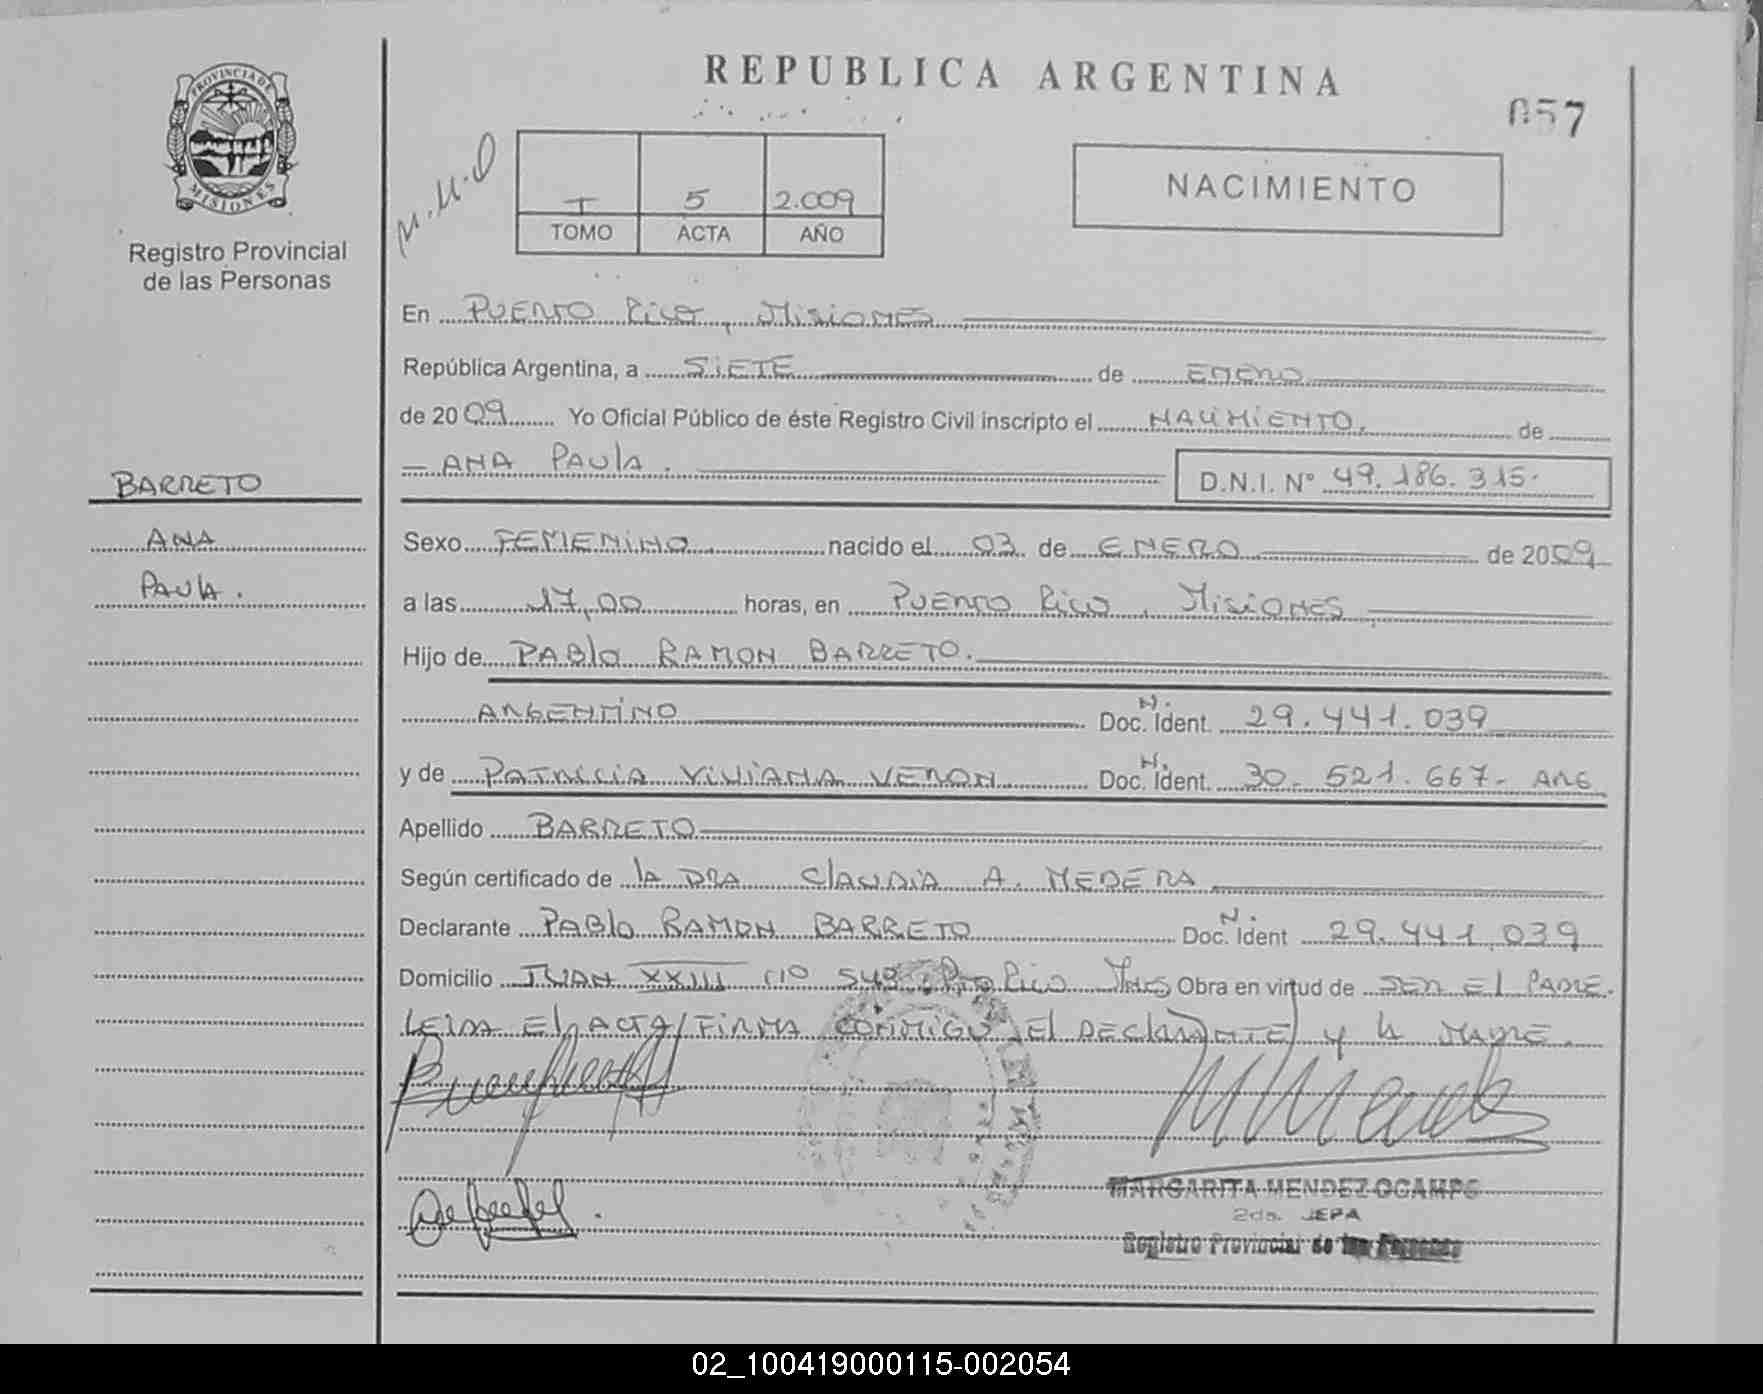 REPUBLICA ARGENTINA
057
PROVINCIA DE
MISIONES
Registro Provincial
de las Personas
M.M.O
I 5 2.009
TOMO ACTA AÑO
NACIMIENTO
En PUERTO Rico, MisioNES
República Argentina, a SiETE de ENERO
de 2009 Yo Oficial Público de éste Registro Civil inscripto el NACIMIENTO, de
- ANA PAULA. D.N.I. N° 49.186.315.
BARRETO
ANA
PAULA.
Sexo FEMENINO nacido el 03 de ENERO de 2009
a las 17,00 horas, en PUERTO Rico, MisioNES
Hijo de PABlo RAMON BARRETO.
ARGENTINO N. Doc. Ident. 29.441.039
y de PATRICIA VIVIANA VERON N. Doc. Ident. 30.521.667- ARG
Apellido BARRETO
Según certificado de lA DRA ClAUDIA A. MEDERA
Declarante PABlo RAMON BARRETO N. Doc. Ident 29.441.039
Domicilio JUAN XXIII N° 549 Pto Rico Mnes Obra en virtud de SER El PADRE.
LEIDA El ACTA, FIRMA CONMIGO El DEClARANTE y lA MADRE.
MARGARITA MENDEZ OCAMPO
2da. JEFA
Registro Provincial de las Personas
02_100419000115-002054